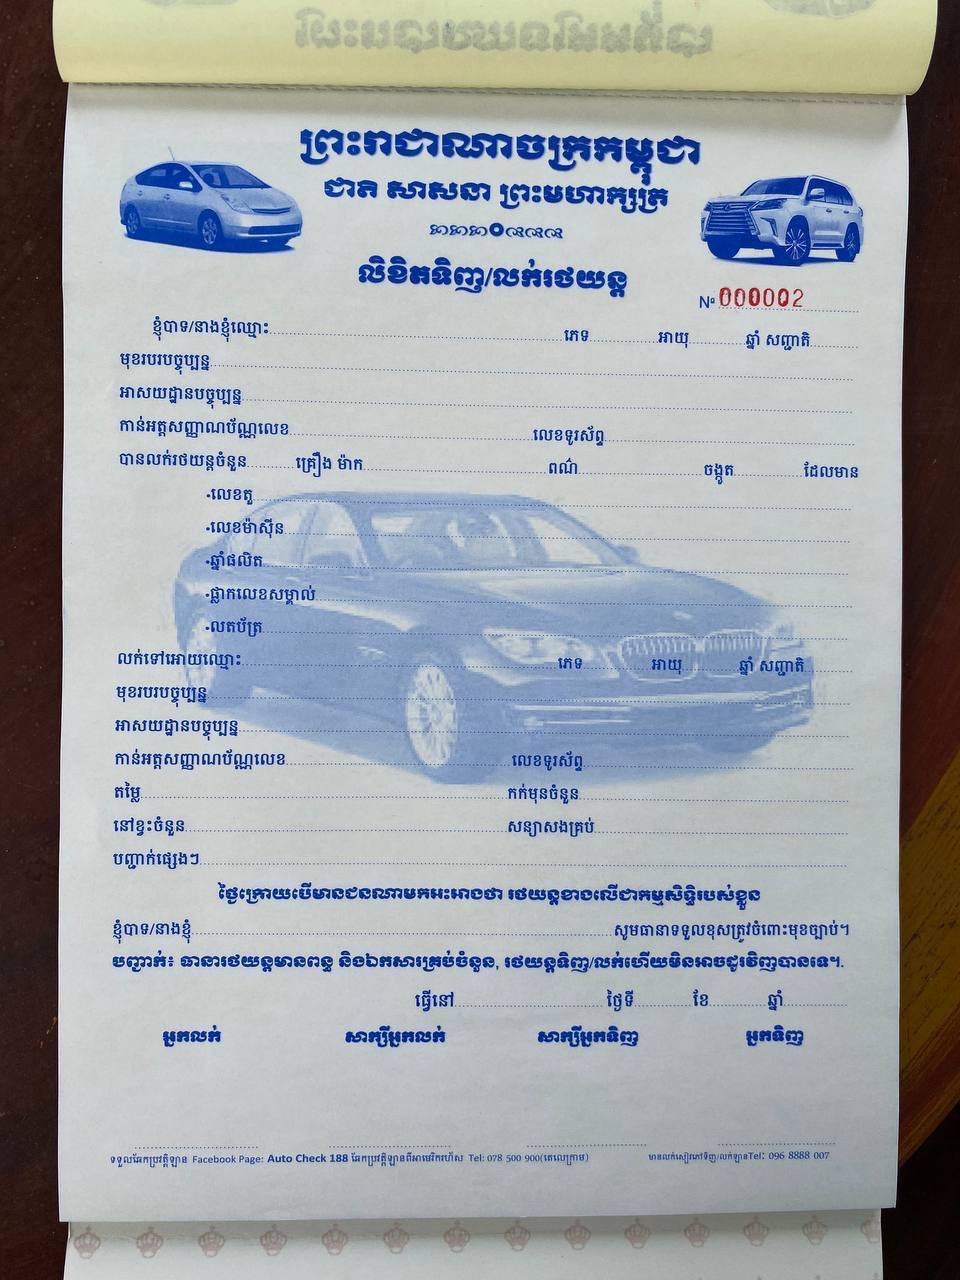 ព្រះរាជាណាចក្រកម្ពុជា
ជាតិ សាសនា ព្រះមហាក្សត្រ
លិខិតទិញ/លក់រថយន្ត
№ 000002
ខ្ញុំបាទ/នាងខ្ញុំឈ្មោះ ភេទ អាយុ ឆ្នាំ សញ្ជាតិ
មុខរបរបច្ចុប្បន្ន
អាសយដ្ឋានបច្ចុប្បន្ន
កាន់អត្តសញ្ញាណប័ណ្ណលេខ លេខទូរស័ព្ទ
បានលក់រថយន្តចំនួន គ្រឿង ម៉ាក ពណ៌ ចង្កូត ដែលមាន
·លេខតួ
·លេខម៉ាស៊ីន
·ឆ្នាំផលិត
·ផ្លាកលេខសម្គាល់
·លតប័ត្រ
លក់ទៅអោយឈ្មោះ ភេទ អាយុ ឆ្នាំ សញ្ជាតិ
មុខរបរបច្ចុប្បន្ន
អាសយដ្ឋានបច្ចុប្បន្ន
កាន់អត្តសញ្ញាណប័ណ្ណលេខ លេខទូរស័ព្ទ
តម្លៃ កក់មុនចំនួន
នៅខ្វះចំនួន សន្យាសងគ្រប់
បញ្ជាក់ផ្សេងៗ
ថ្ងៃក្រោយបើមានជនណាមកអះអាងថា រថយន្តខាងលើជាកម្មសិទ្ធិរបស់ខ្លួន
ខ្ញុំបាទ/នាងខ្ញុំ សូមធានាទទួលខុសត្រូវចំពោះមុខច្បាប់។
បញ្ជាក់៖ ធានារថយន្តមានពន្ធ និងឯកសារគ្រប់ចំនួន, រថយន្តទិញ/លក់ហើយមិនអាចដូរវិញបានទេ។.
ធ្វើនៅ ថ្ងៃទី ខែ ឆ្នាំ
អ្នកលក់ សាក្សីអ្នកលក់ សាក្សីអ្នកទិញ អ្នកទិញ
ទទួលឆែកប្រវត្តិឡាន Facebook Page: Auto Check 188 ឆែកប្រវត្តិឡានពីអាមេរិករហ័ស Tel: 078 500 900(តេលេក្រាម) មានលក់សៀវភៅទិញ/លក់ឡានTel: 096 8888 007